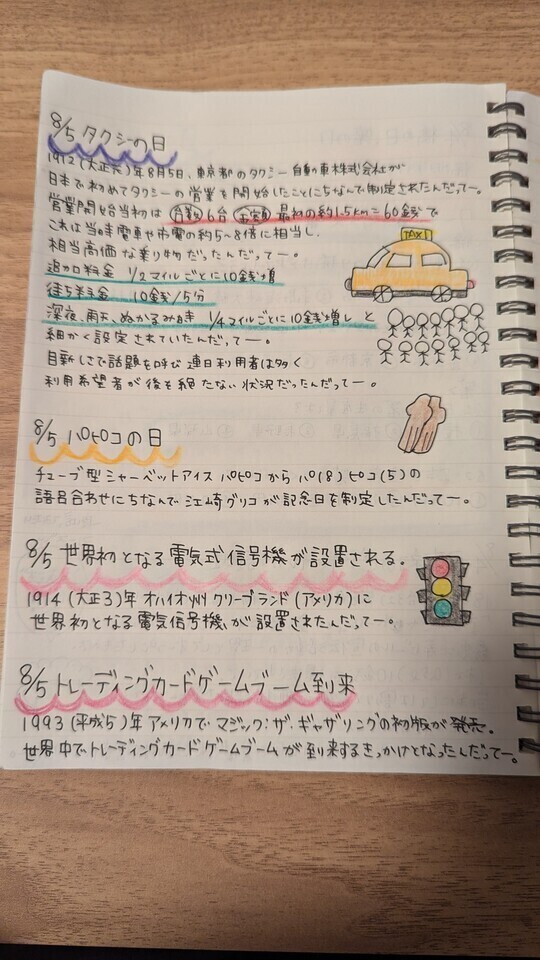 8/5 タクシーの日
1912(大正元)年8月5日、東京都のタクシー自動車株式会社が
日本で初めてタクシーの営業を開始したことにちなんで制定されたんだってー。
営業開始当初は 台数6台 金額 最初の約1.5km=60銭で
これは当時電車や市電の約5〜8倍に相当し、
相当高価な乗り物だったんだってー。
TAXI
追加料金 1/2マイルごとに10銭増
待ち料金 10銭/5分
深夜、雨天、ぬかるみ時 1/4マイルごとに10銭増し と
細かく設定されていたんだってー。
目新しさで話題を呼び 連日利用者は多く
利用希望者が後を絶たない状況だったんだってー。
8/5 パピコの日
チューブ型シャーベットアイス パピコから パ(8)ピコ(5)の
語呂合わせにちなんで江崎グリコが記念日を制定したんだってー。
8/5 世界初となる電気式信号機が設置される。
1914(大正3)年 オハイオ州 クリーブランド(アメリカ)に
世界初となる電気信号機が設置されたんだってー。
8/5 トレーディングカードゲームブーム到来
1993(平成5)年アメリカで マジック:ザ・ギャザリングの初版が発売。
世界中でトレーディングカードゲームブームが到来するきっかけとなったんだってー。